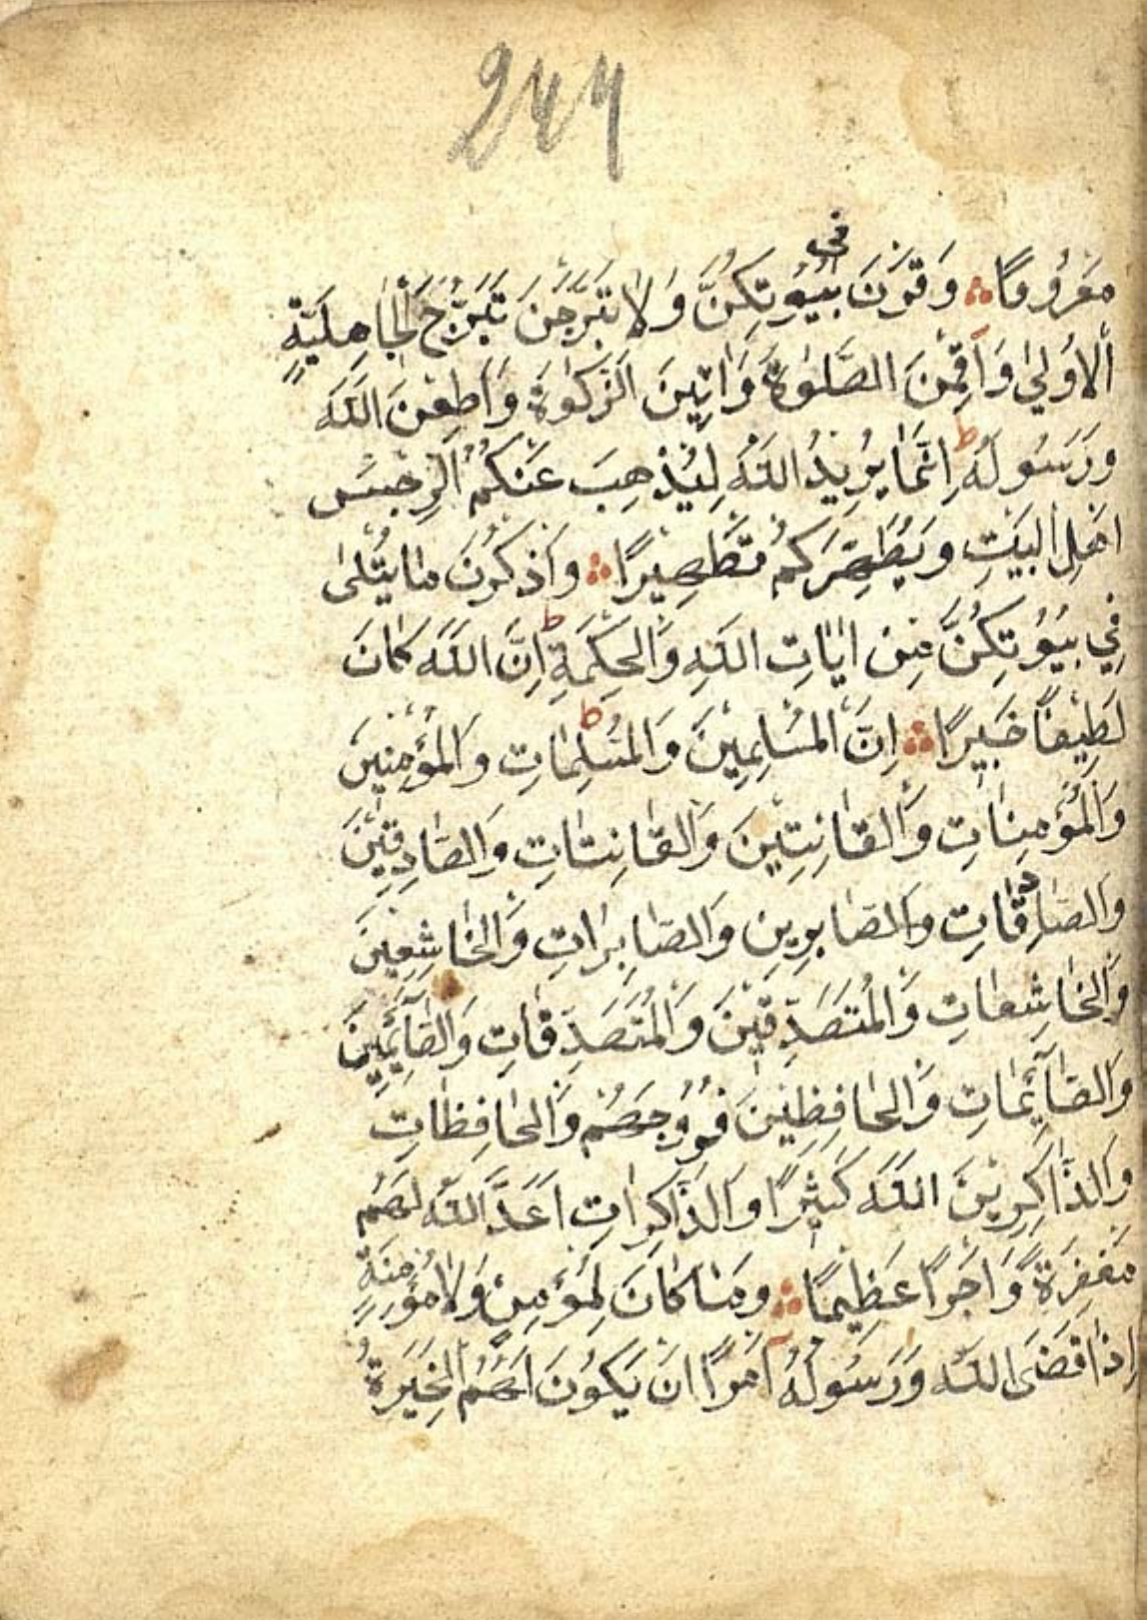 244
مَعْرُوفًا ∴ وَقَرْنَ فِى بُيُوتِكُنَّ وَلَا تَبَرَّجْنَ تَبَرُّجَ الْجَاهِلِيَّةِ
الْاُولٰى وَاَقِمْنَ الصَّلٰوةَ وَاٰتِينَ الزَّكٰوةَ وَاَطِعْنَ اللّٰهَ
وَرَسُولَهُ ط اِنَّمَا يُرِيدُ اللّٰهُ لِيُذْهِبَ عَنْكُمُ الرِّجْسَ
اَهْلَ الْبَيْتِ وَيُطَهِّرَكُمْ تَطْهِيرًا ∴ وَاذْكُرْنَ مَا يُتْلٰى
فِي بُيُوتِكُنَّ مِنْ اٰيَاتِ اللّٰهِ وَالْحِكْمَةِ ط اِنَّ اللّٰهَ كَانَ
لَطِيفًا خَبِيرًا ∴ اِنَّ الْمُسْلِمِينَ وَالْمُسْلِمَاتِ ط وَالْمُؤْمِنِينَ
وَالْمُؤْمِنَاتِ وَالْقَانِتِينَ وَالْقَانِتَاتِ وَالصَّادِقِينَ
وَالصَّادِقَاتِ وَالصَّابِرِينَ وَالصَّابِرَاتِ وَالْخَاشِعِينَ
وَالْخَاشِعَاتِ وَالْمُتَصَدِّقِينَ وَالْمُتَصَدِّقَاتِ وَالصَّآئِمِينَ
وَالصَّآئِمَاتِ وَالْحَافِظِينَ فُرُوجَهُمْ وَالْحَافِظَاتِ
وَالذَّاكِرِينَ اللّٰهَ كَثِيرًا وَالذَّاكِرَاتِ اَعَدَّ اللّٰهُ لَهُمْ
مَغْفِرَةً وَاَجْرًا عَظِيمًا ∴ وَمَا كَانَ لِمُؤْمِنٍ وَلَا مُؤْمِنَةٍ
اِذَا قَضَى اللّٰهُ وَرَسُولُهُ اَمْرًا اَنْ يَكُونَ لَهُمُ الْخِيَرَةُ